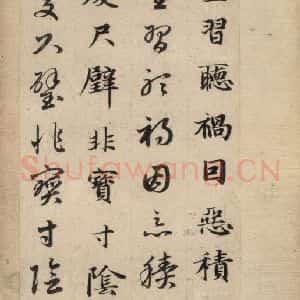 習聽禍因惡積
習聽禍因惡積
慶尺璧非寶寸陰
慶尺璧非寶寸陰
Shufawang.CN